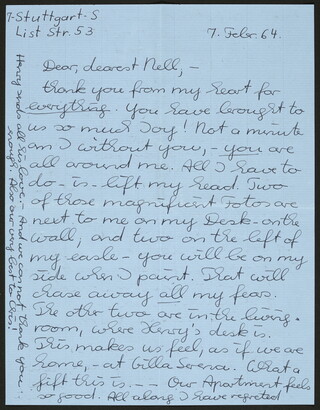 7-Stuttgart-S
List Str. 53
7. Febr. 64.
Dear, dearest Nell, -
thank you from my heart for
everything. You have brought to
us so much Joy! Not a minute
am I without you, - you are
all around me. All I have to
do - is - lift my head. Two
of those magnificent Fotos are
next to me on my Desk - on the
wall, and two on the left of
my easle - you will be on my
side when I paint. That will
chase away all my fears.
The other two are in the living-
room, where Henry's desk is.
This makes us feel, as if we are
home, - at Gilla Serena. What a
gift this is. -- Our Apartment feels
so good. All along I have regretted
Henry sends all his love. And we can not thank you
enough. Also our very best to Chris!